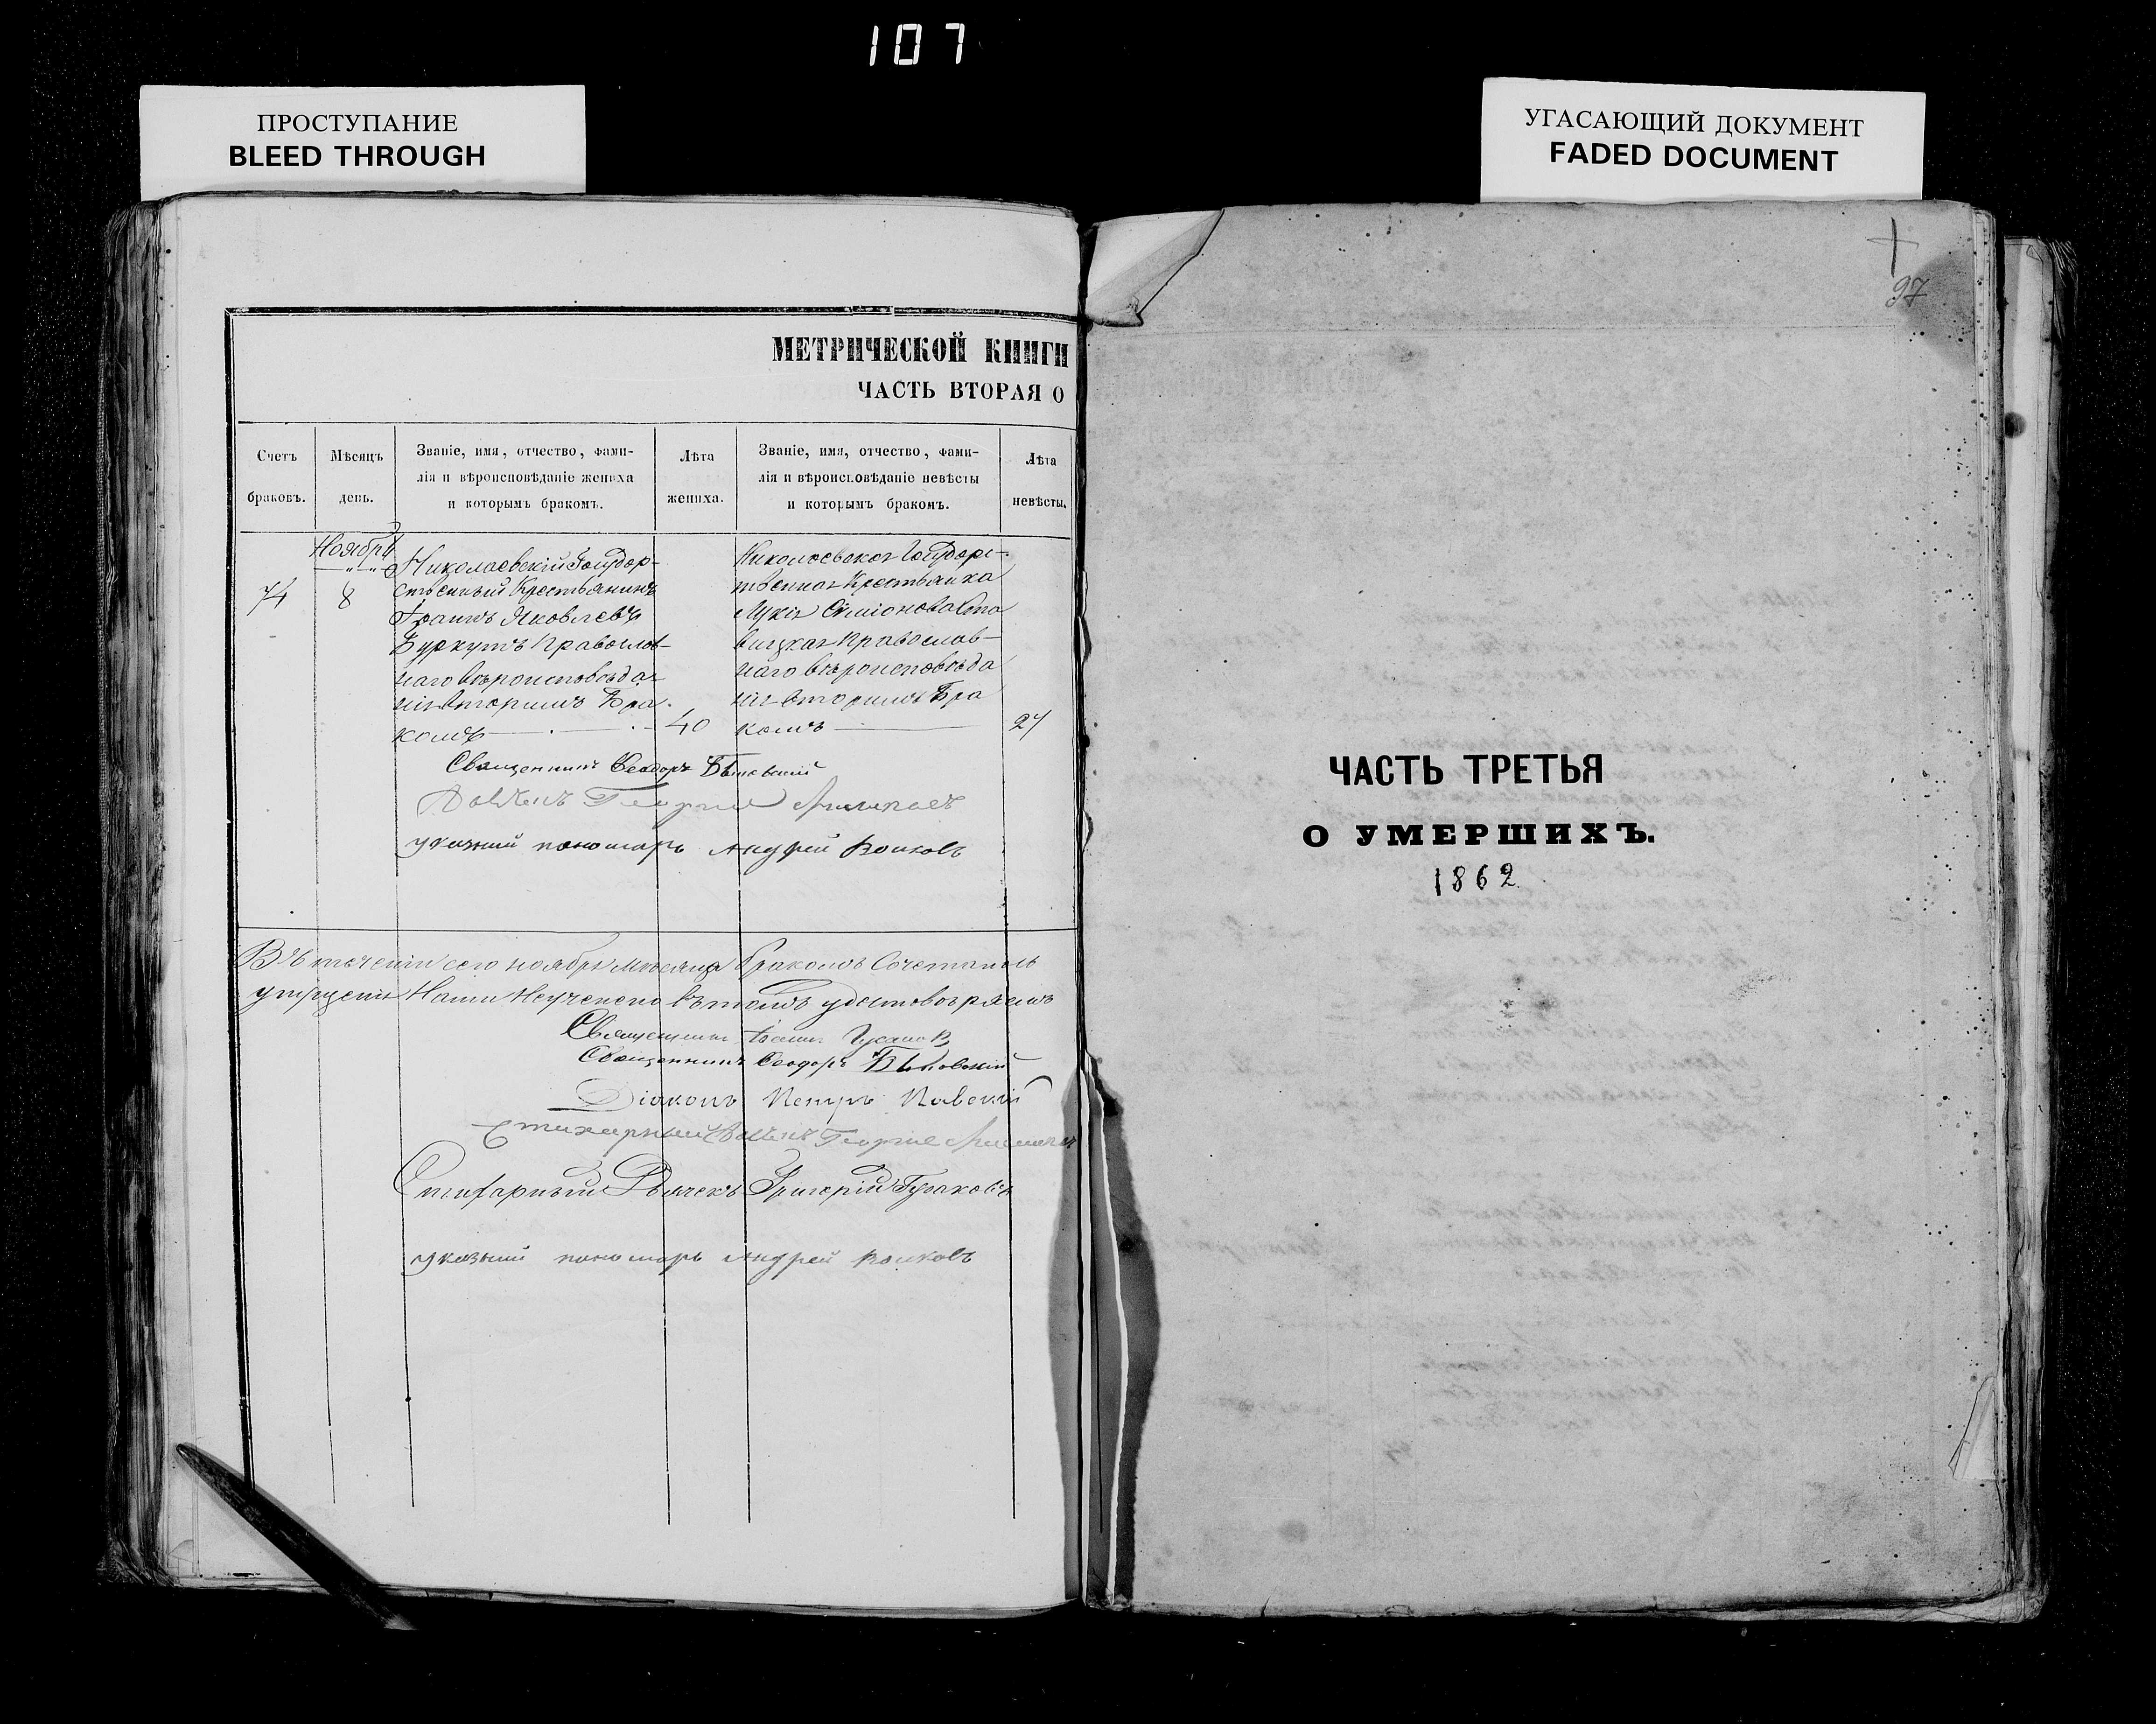 107
ПРОСТУПАНИЕ
BLEED THROUGH
УГАСАЮЩИЙ ДОКУМЕНТ
FADED DOCUMENT
МЕТРИЧЕСКОЙ КНИГИ
ЧАСТЬ ВТОРАЯ О
Счетъ браковъ.
Мѣсяцъ день.
Званіе, имя, отчество, фами-
лія и вѣроисповѣданіе жениха
и которымъ бракомъ.
Лѣта жениха.
Званіе, имя, отчество, фами-
лія и вѣроисповѣданіе невѣсты
и которымъ бракомъ.
Лѣта невѣсты.
Ноябрь
74
8
Николаевскій Государ-
ственный Крестьянинъ
Іоаннъ Яковлевъ
Буркутъ Православ-
наго вѣроисповѣда-
нія вторымъ Бра-
комъ
40
Николаевская Государс-
твенная Крестьянка
Симіонова Ста
вицкая Православ-
наго вѣроисповѣда
нія вторымъ Бра
комъ
27
Священникъ Ѳеодоръ
Георгій
указный пономарь Андрей Волковъ
Въ теченіи сего ноября мѣсяца бракомъ Сочетались
въ томъ удостовѣряемъ
Священникъ Іоаннъ
Священникъ Ѳеодоръ
Діаконъ Петръ Павскій
Стихарный Георгій
Стихарный Дьячекъ Григорій
указный пономарь Андрей Волковъ
97
ЧАСТЬ ТРЕТЬЯ
О УМЕРШИХЪ.
1862